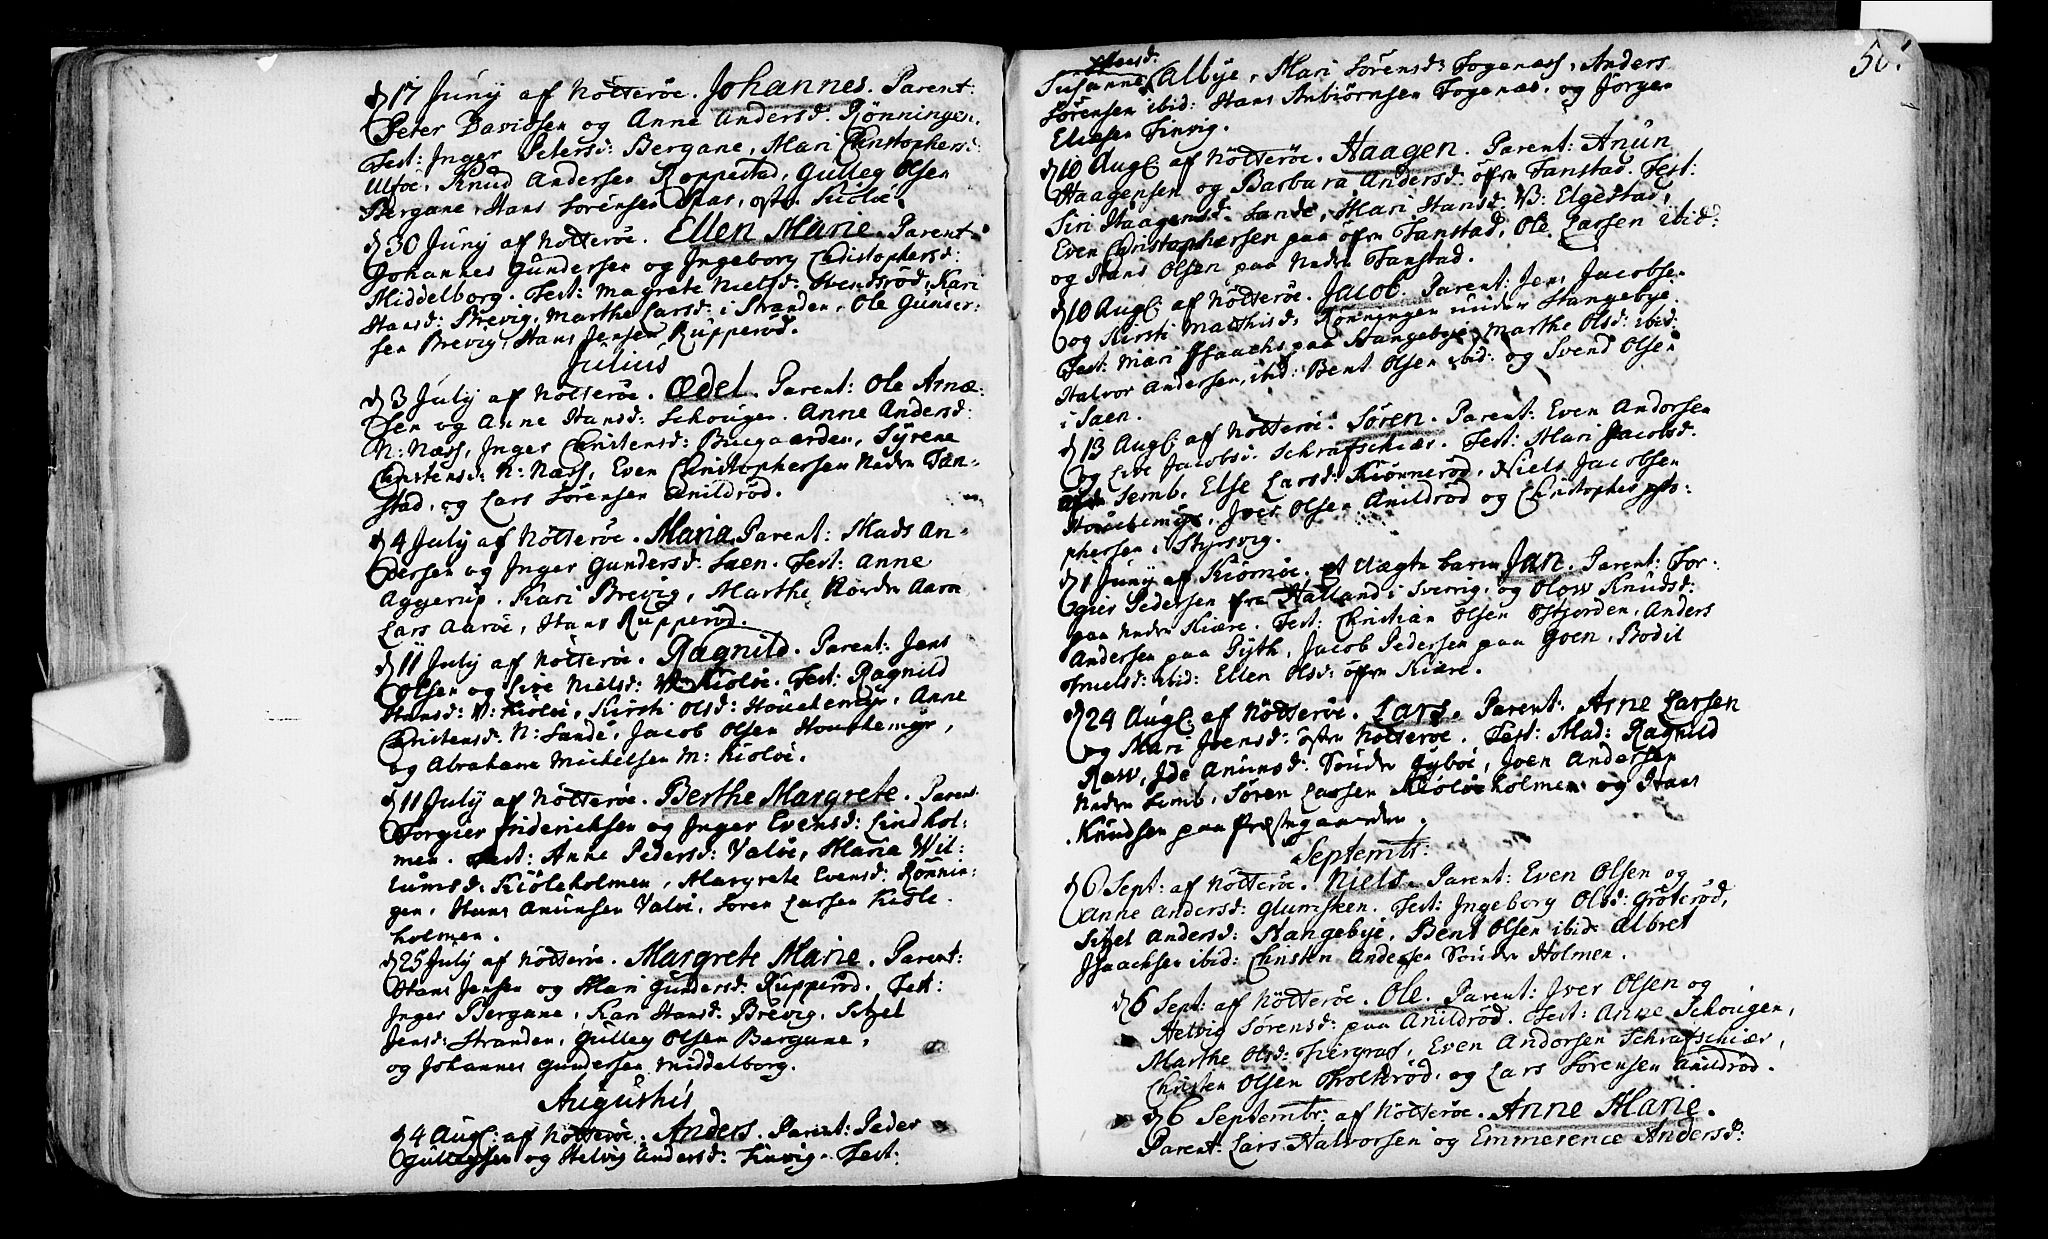 d 17 Junÿ af Nötteröe. Johannes. Parent:
Peter Davidsen og Anne Andersd: Rönningen.
Test: Inger Petersd: Bergane, Mari Christophersd:
Ulföe, Knud Andersen Roppestad, Gulleg Olsen
Bergane, Hans Sörensen
d 30 Junÿ af Nötteröe. Ellen Marie. Parent:
Johannes Gundersen og Ingeborg Christophersd:
Middelborg. Test: Magrete Nielsd: Kari
Hansd: Brevig, Marthe Larsd: i Stranden, Ole Gunder:
sen Brevig, Hans Jensen Rupperöd.
Julius
d 3 Julÿ af Nötteröe. Ædel. Parent: Ole Arne:
sen og Anne Hansd: Schougen. Anne Andersd:
N: Næss, Inger Christensd: Buegaarden, Syrene
Christensd: N: Næss, Even Christophersen Nedre Tan-
stad, og Lars Sörensen Anildröd.
d 4 Julÿ af Nötteröe. Maria. Parent: Mads An-
dersen og Inger Gundersd: Saen. Test: Anne
Aggerup. Kari Brevig, Marthe Nordre Aarö
Lars Aaröe, Hans Rupperöd.
d 11 Julÿ af Nötteröe. Ragnild. Parent: Jens
Olsen og Sive Nielsd: Kiolöe. Test: Ragnild
Hansd: V: Kiolöe, Kirsti Olsd: Houchemÿr, Anne
Christensd: N: Sande, Jacob Olsen Houchemÿr,
og Abraham Michelsen M: Kiolöe.
d 11 Julÿ af Nötteröe. Berthe Margrete. Parent
Torgier Friderichsen og Inger Evensd: Lindhol:
men. Test: Anne Pedersd: Valöe, Maria Wil:
lumsd: Kiöleholmen, Margrete Evensd: Rönnin:
gen, Hans Anunsen Valöe, Sören Larsen Kiöle-
holmen.
d 25 Julÿ af Nötteröe. Margrete Marie. Parent:
Hans Jensen og Mari Gundersd: Rupperöd. Test:
Inger Bergane, Kari Hansd: Brevig, Sitzel
Jensd: Stranden, Gulleg Olsen Bergane,
og Johannes Gundersen Middelborg.
Augusti
d 4 Aug: af Nötteröe. Anders. Parent: Peder
Gullegsen og Helvig Andersd: Finvig. Test:
50.
Susanne Albÿe, Mari Sörensd: Togenæss, Anders
Sörensen ibid: Hans Anbiörnsen Togenæs, og Jörgen
Eliasen Finvig.
d 10 Aug: af Nötteröe. Haagen. Parent: Anun
Haagensen og Barbara Andersd: öfre Tanstad. Test:
Siri Haagensd: Sande, Mari Hansd: V: Elgestad,
Even Christophersen paa öfre Tanstad, Ole Larsen ibid:
og Hans Olsen paa Nedre Tanstad.
d 10 Aug: af Nötteröe. Jacob. Parent: Jens Jacobsen
og Kirsti Matthisd: Rönningen under Stangebÿe.
Test: Mari Isaachs paa Stangebÿe, Marthe Olsd: ibid:
Halvor Andersen, ibid: Bent Olsen ibid: og Svend Olsen
i Saen.
d 13 Aug: af Nötteröe. Sören. Parent: Even Andersen
og Live Jacobsd: Schrafschiær. Test: Mari Jacobsd:
Semb, Else Larsd: Kiönneröd, Niels Jacobsen
Houchemÿr, Iver Olsen Anildröd og Christopher
phersen i Stÿrsvig.
d 1 Junÿ af Kiömöe. et Uægte barn Jan. Parent: Tor-
gier Pedersen fra Halland i Sverrig, og Olow Knudsd:
paa Nedre Kiære. Test: Christian Olsen Anders
Andersen paa Pÿth, Jacob Pedersen paa Goen, Bodil
ibid: Ellen Olsd: öfre Kiære.
d 24 Aug: af Nötteröe. Lars. Parent: Arne Larsen
og Mari Joensd: östre Nötteröe. Test: Mad: Ragnild
Raw, Ide Anunsd: Söndre Gÿböe, Joen Andersen
Nedre Semb, Sören Larsen Kiöleholmen og Hans
Knudsen paa Præstegaarden.
Septembr:
d 6 Sept: af Nötteröe. Niels. Parent: Even Olsen og
Anne Andersd: Glumsken. Test: Ingeborg Olsd: Gröteröd,
Sitzel Andersd: Stangebÿe, Bent Olsen ibid: Albret
Isaachsen ibid: Christen Andersen Söndre Holmen.
d 6 Sept: af Nötteröe. Ole. Parent: Iver Olsen og
Helvig Sörensd: paa Anildröd. Test: Anne Schougen,
Marthe Olsd: Even Andersen Schrafschiær,
Christen Olsen og Lars Sörensen Anildröd.
d 6 Septembr: af Nötteröe. Anne Marie.
Parent: Lars Halvorsen og Emmerence Andersd: